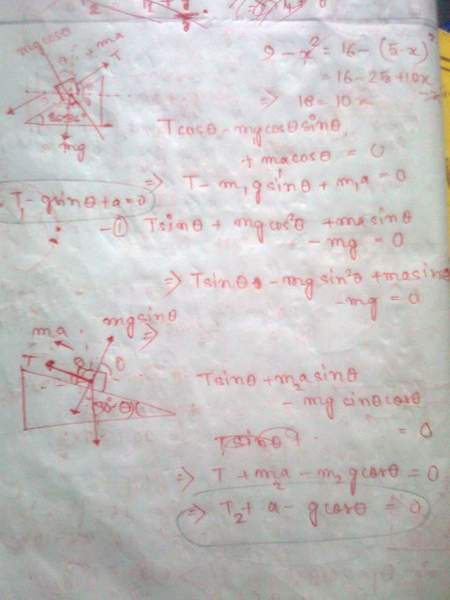 mgcosθ
ma
T
9 - x² = 16 - (5-x)²
= 16 - 25 + 10x
⇒ 18 = 10x
mg
Tcosθ - mgcosθsinθ
+ macosθ = 0
⇒ T - m₁gsinθ + m₁a = 0
T₁ - gsinθ + a = 0
- ① Tsinθ + mgcos²θ + masinθ
- mg = 0
⇒ Tsinθ - mgsin²θ + masinθ
- mg = 0
ma
mgsinθ ⇒
T
90°-θ
Tsinθ + m₂asinθ
- mgsinθcosθ
= 0
Tsinθ
⇒ T + m₂a - m₂gcosθ = 0
⇒ T₂ + a - gcosθ = 0